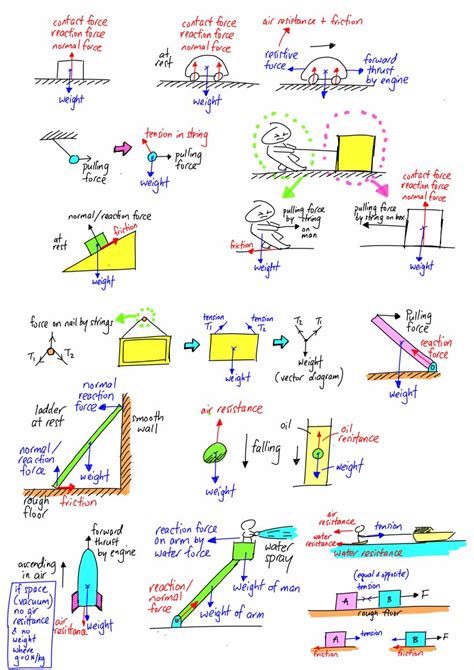 contact force
reaction force
normal force
weight
contact force
reaction force
normal force
at
rest
weight
air resistance + friction
resistive
force
forward
thrust
by engine
weight
pulling
force
tension in string
pulling
force
weight
normal/reaction force
at
rest
friction
weight
pulling force
by string
on
man
friction
weight
contact force
reaction force
normal force
pulling force
by string on box
weight
force on nail by strings
T1
T2
tension
T1
tension
T2
weight
T1
T2
weight
(vector diagram)
Pulling
force
reaction
force
weight
normal
reaction
force
ladder
at rest
smooth
wall
normal/
reaction
force
weight
rough
floor
friction
air resistance
falling
weight
oil
oil
resistance
weight
forward
thrust
by engine
ascending
in air
if space
(vacuum)
no air
resistance
& no
weight
where
g=0N/kg
air
resistance
weight
reaction force
on arm by
water force
water
spray
weight of man
reaction/
normal
force
weight of arm
air
resistance
water
resistance
tension
water resistance
(equal & opposite)
tension
A
B
F
rough floor
tension
A
friction
tension
B
F
friction